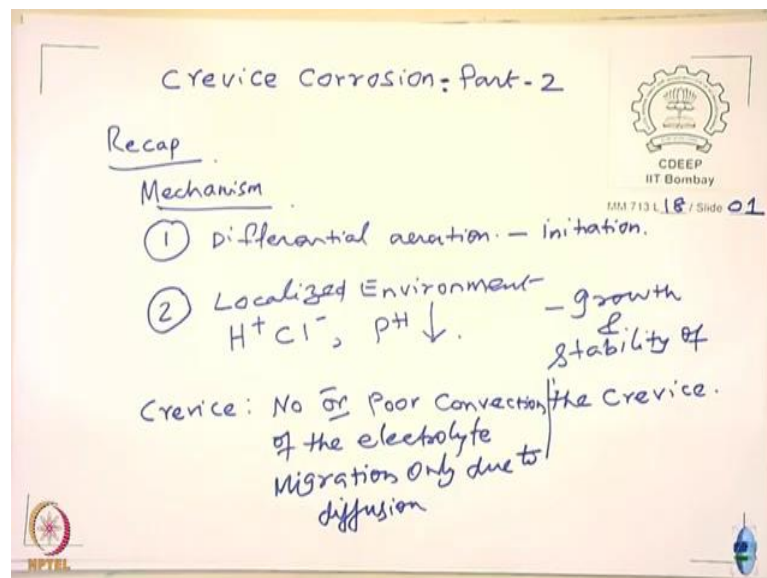 Crevice Corrosion: Part-2
CDEEP
IIT Bombay
MM 713 L 18 / Slide 01
Recap
Mechanism
① Differential aeration. – initation.
② Localized Environment – growth
H⁺ Cl⁻, pH ↓. &
stability of
the Crevice.
Crevice: No or Poor Convection
of the electrolyte
Migration Only due to
diffusion
NPTEL